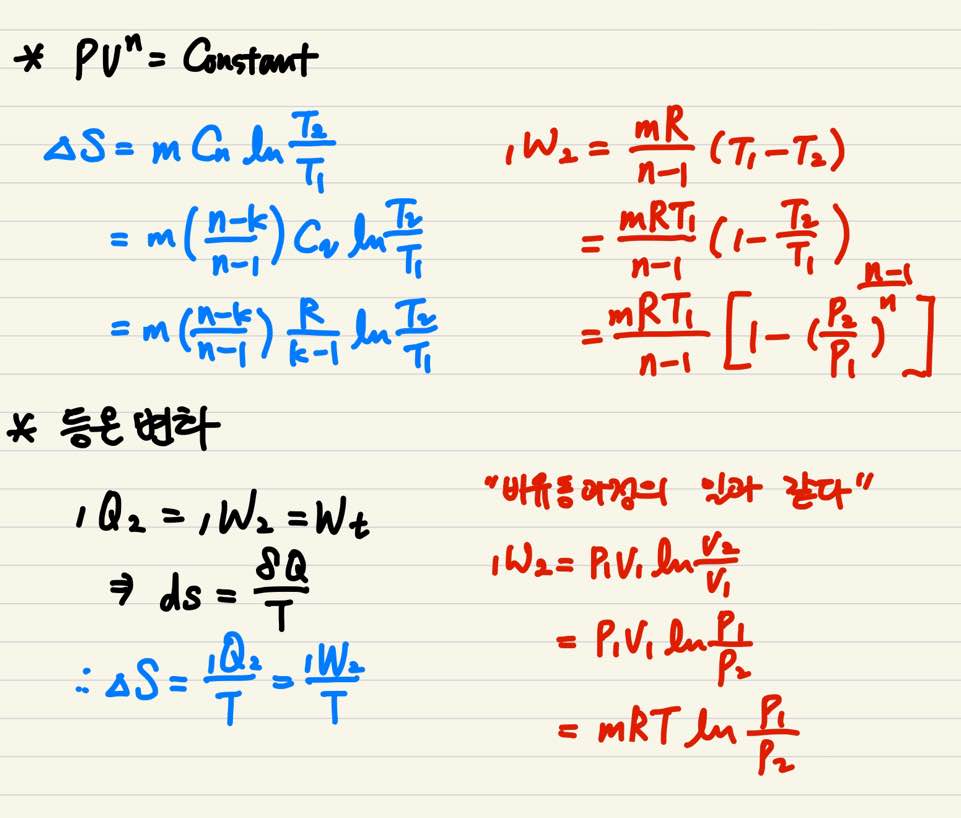 * PVⁿ = Constant
ΔS = m Cn ln T₂/T₁
= m((n-k)/(n-1)) Cv ln T₂/T₁
= m((n-k)/(n-1)) R/(k-1) ln T₂/T₁
₁W₂ = mR/(n-1) (T₁-T₂)
= mRT₁/(n-1) (1-T₂/T₁)
= mRT₁/(n-1) [1-(P₂/P₁)^((n-1)/n)]
* 등온 변화
₁Q₂ = ₁W₂ = Wt
⇒ ds = δQ/T
∴ ΔS = ₁Q₂/T = ₁W₂/T
"비유동과정의 일과 같다"
₁W₂ = P₁V₁ ln V₂/V₁
= P₁V₁ ln P₁/P₂
= mRT ln P₁/P₂